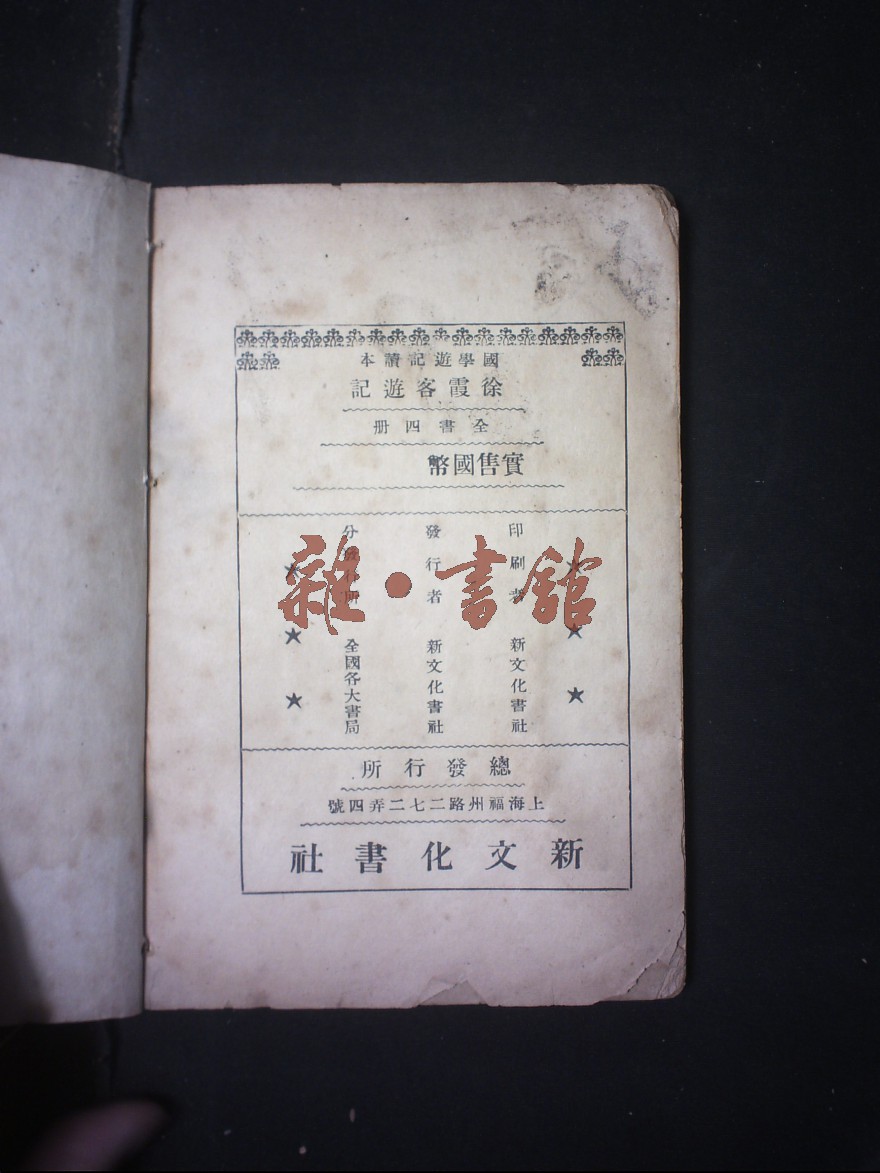 國學遊記讀本
徐霞客遊記
全書四册
實售國幣
印刷者 新文化書社
發行者 新文化書社
分發行所 全國各大書局
總發行所
上海福州路二七二弄四號
新文化書社
雜·書館